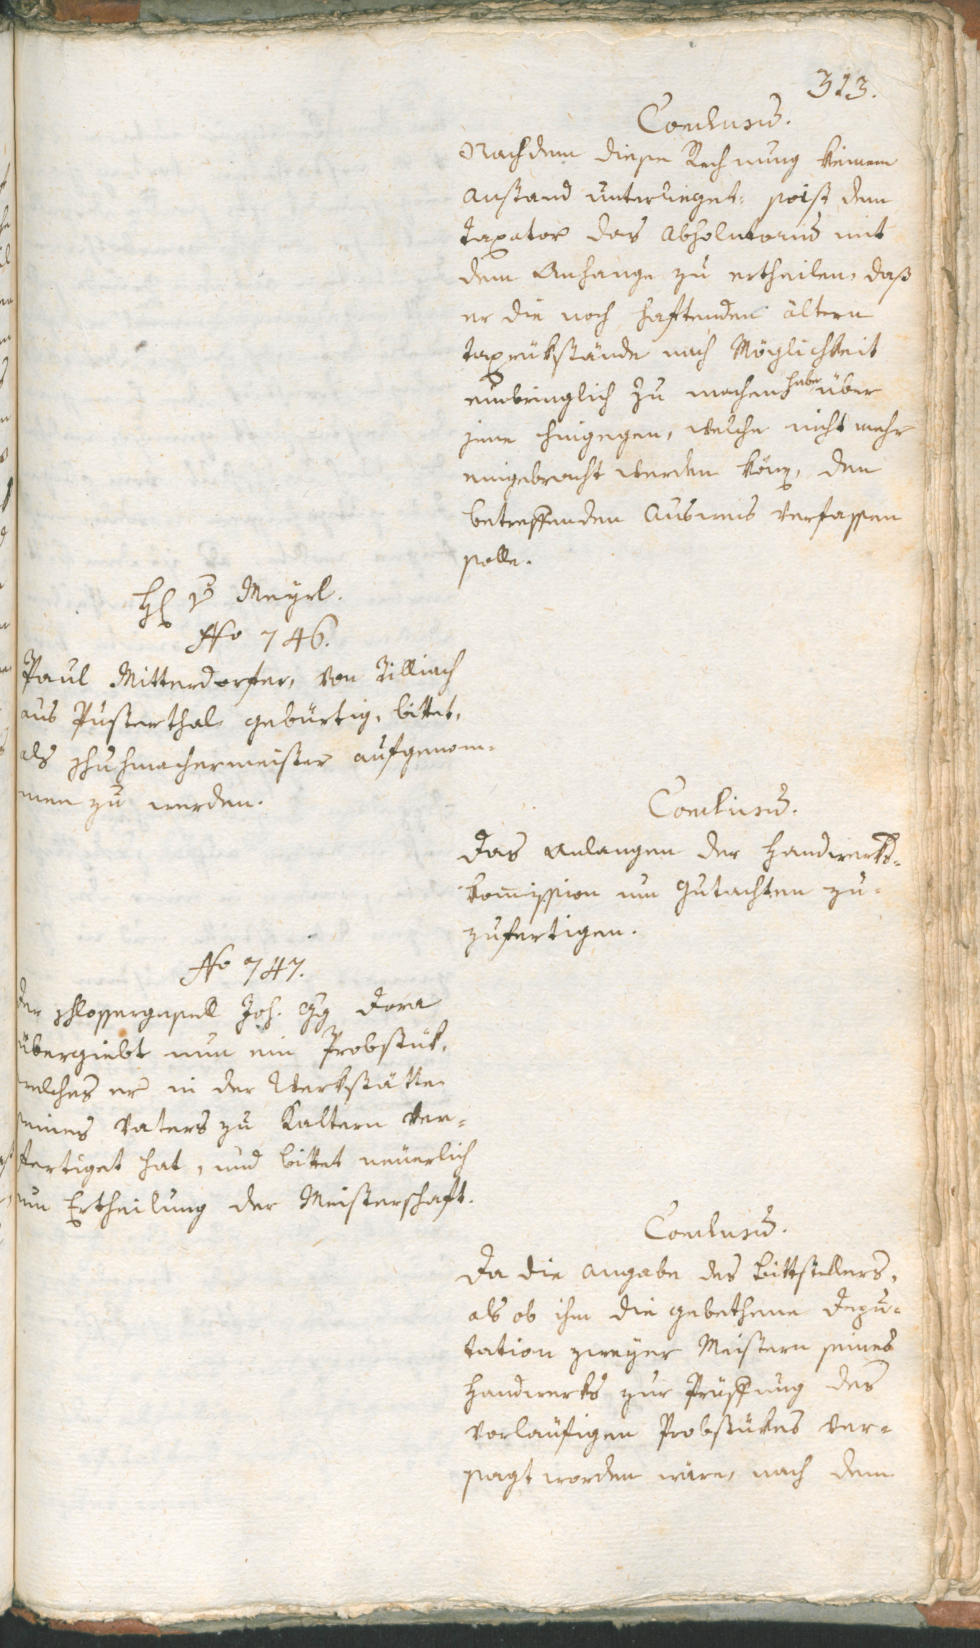 313.
Conclusum.
Nachdem diese Rechnung keinem
Anstand unterlieget: so ist dem
Taxator das Absolutorium mit
dem Anhange zu ertheilen, daß
er die noch haftenden ältern
Taxrükstände nach Möglichkeit
einbringlich zu machen habe über
jene hingegen, welche nicht mehr
eingebracht werden könn, den
betreffenden Ausweis verfassen
solle.
H v Meyrl.
No 746.
Paul Mitterdorfer, von Tilliach
aus Pusterthal gebürtig, bittet,
als Schuhmachermeister aufgenom-
men zu werden.
Conclusum.
Das Anlangen der Handwerks-
kommission um Gutachten zu-
zufertigen.
No 747.
Der Schlossergesell Joh. Gg Dora
übergiebt nun ein Probstük,
welches er in der Werkstätte
seines Vaters zu Kaltern ver-
fertiget hat, und bittet neuerlich
um Ertheilung der Meisterschaft.
Conclusum.
Da die Angabe des Bittstellers,
als ob ihm die gebethene Depu-
tation zweyer Meistern seines
Handwerks zur Prüffung des
vorläufigen Probstükes ver-
sagt worden wäre, nach dem